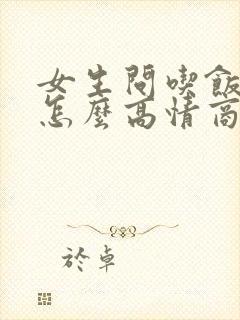 女生問喫飯
怎麼高情商
於卓